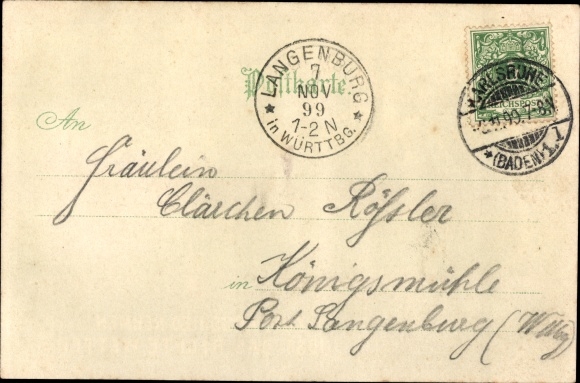 LANGENBURG
7
NOV
99
1-2 N
in WÜRTTBG.
Postkarte.
REICHSPOST
KARLSRUHE
(BADEN) 1.
An
Fräulein
Clärchen Rößler
in Königsmühle
Post Langenburg (Wttbg)